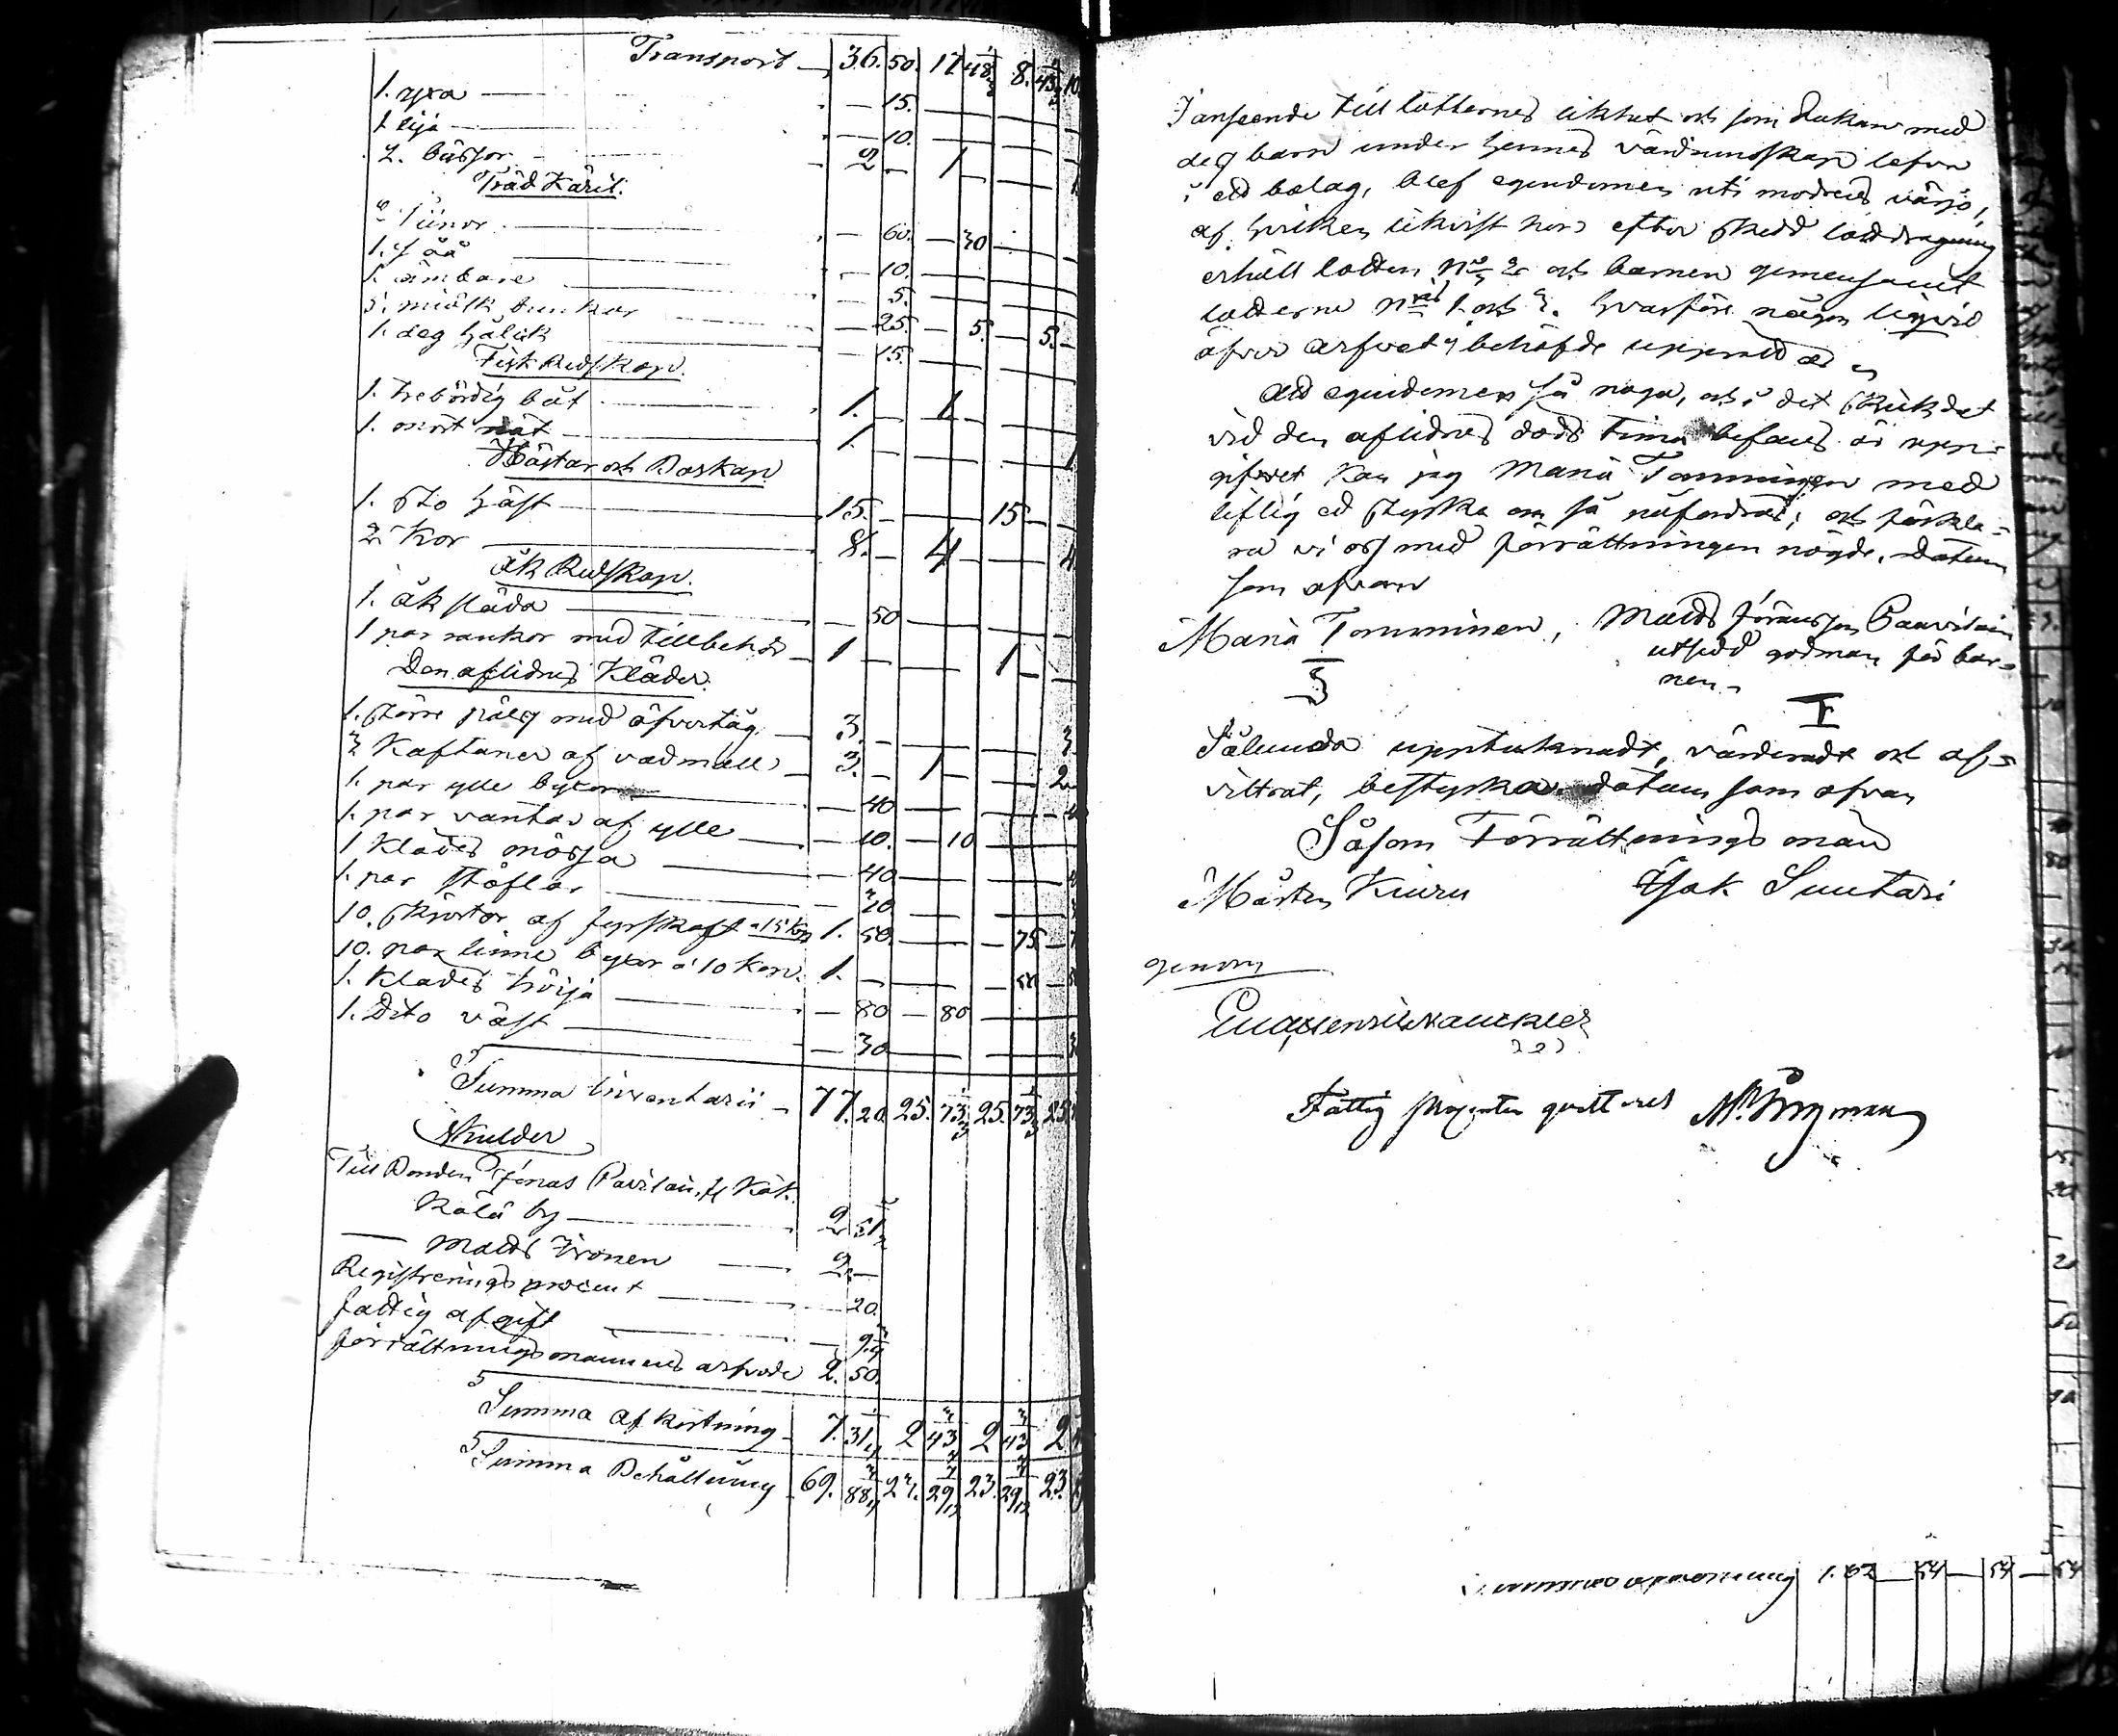 Transport 36. 50. 17 48 1/3 8. 43
1. yxa — 15.
1 lija — 10.
2. bässor 2 — 1
Träd Käril.
2 Tiinor — 60. — 30
1. såå — 10.
1. ämbare — 5.
5. miölk bunkar — 25. — 5. — 5.
1. deg hålik — 15.
Fisk Redskap.
1. trebördig båt 1. — 1.
1. mört nät 1.
Hästar och Boskap
1. sto häst 15. — 15
2 Kor 8. — 4 — 4
Åk Redskap.
1. åk släda — 50
1 par rankor med tillbehör 1 — 1
Den aflidnes Kläder.
1. större päls med öfvertåg 3. — 3
3 Kaftaner af vadmall 3. — 1 — 2
1. par ylle byxor — 40
1. par vantar af ylle — 10. — 10
1 Klädes mössa — 40
1. par stöflor — 20
10. skjortor af fyrskaft a 15 kop 1. 50 — 75
10. par linne byxor a 10 kop. 1. — 50
1. Klädes tröja — 80 — 80
1. Dito väst — 30
Summa Inventarii 77. 20. 25. 73 1/3 25. 73 1/3 25.
Skulder
Till Bonden Jönas Pavilain, fr Käk.
Kälä by 2 51
— Matts Ironen 2. —
Registrerings procent — 20.
fattig afgift — 9 3/4
förrättningsmännens arfvode 2. 50.
Summa afkortning 7. 31 1/4 2 43 3/4 2 43 3/4 2
Summa Behållning 69. 88 3/4 23. 29 7/12 23. 29 7/12 23.
I anseende till lotternes likhet och som Enkan med
deß barn under hennes vårdnadskap lefva
i ett bolag, blef egendomen uti modrens värjo,
af hvilken likvist hon efter skedd lottdragning
erhållt lotten No 2 och barnen gemensamt
lotterne Nris 1 och 3. hvarföre någon liqvid
öfver arfvet ej behöfde upprättas
Att egendomen så noga, och i det skick det
vid den aflidnes döds timma befans är upp-
gifvet kan jag Maria Tomminen med
liflig ed styrka om så påfordras; och förkla-
ra vi oss med förrättningen nögde. Datum
som ofvan
Maria Tomminen, Matts Jöransson Paavilain
utsedd godman för bar-
nen.
Sålunda uppteknadt, värderadt och af-
vittrat, bestyrka datum som ofvan
Såsom Förrättnings män
Mårten Kiuru Isak Suutari
genom
Fattig procenten qvitteras
Summa 1. 62 — 54 — 54 — 54